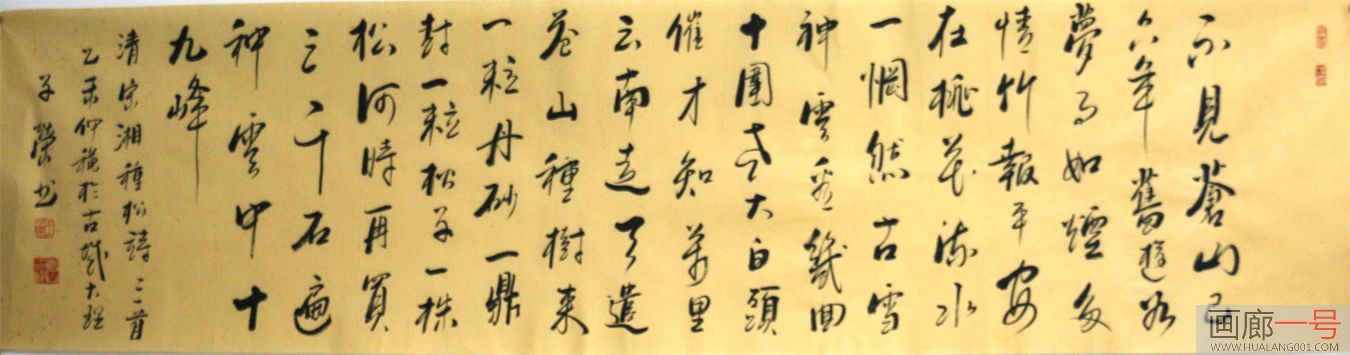 不見蒼山已
六年舊遊如
夢事如煙多
情竹報平安
在桃花流水
一惘然古雪
神雲看幾回
十圍老大白頭
催才知萬里
云南走天遣
蒼山種樹來
一粒丹砂一鼎
封一粒松子一株
松何時再買
三千石遍
种雲中十
九峰
清宋湘種松詩三首
乙未仲秋於古城大理
子書
画廊一号
WWW.HUALANG001.COM